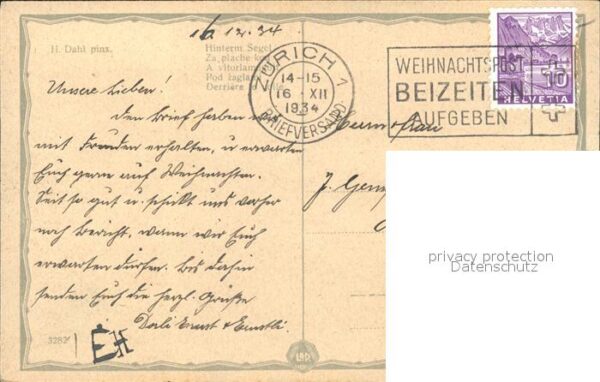 16.12.34
H. Dahl pinx.
Hinterm Segel
Za plache
A vitorlam
Pod żaglam
Derrière
ZÜRICH 1
14-15
16. XII
1934
BRIEFVERSAND
WEIHNACHTSPOST
BEIZEITEN
AUFGEBEN
10
HELVETIA
Unsere Lieben!
Den Brief haben wir
mit Freuden erhalten, u. erwarten
Euch gerne auf Weihnachten.
Seit so gut u. schikt uns vorher
noch Bericht, wann wir Euch
erwarten dürfen. Bis dahin
senden Euch die herzl. Grüße
Ernst &
Herrn & Frau
J.
privacy protection
Datenschutz
3282
EH